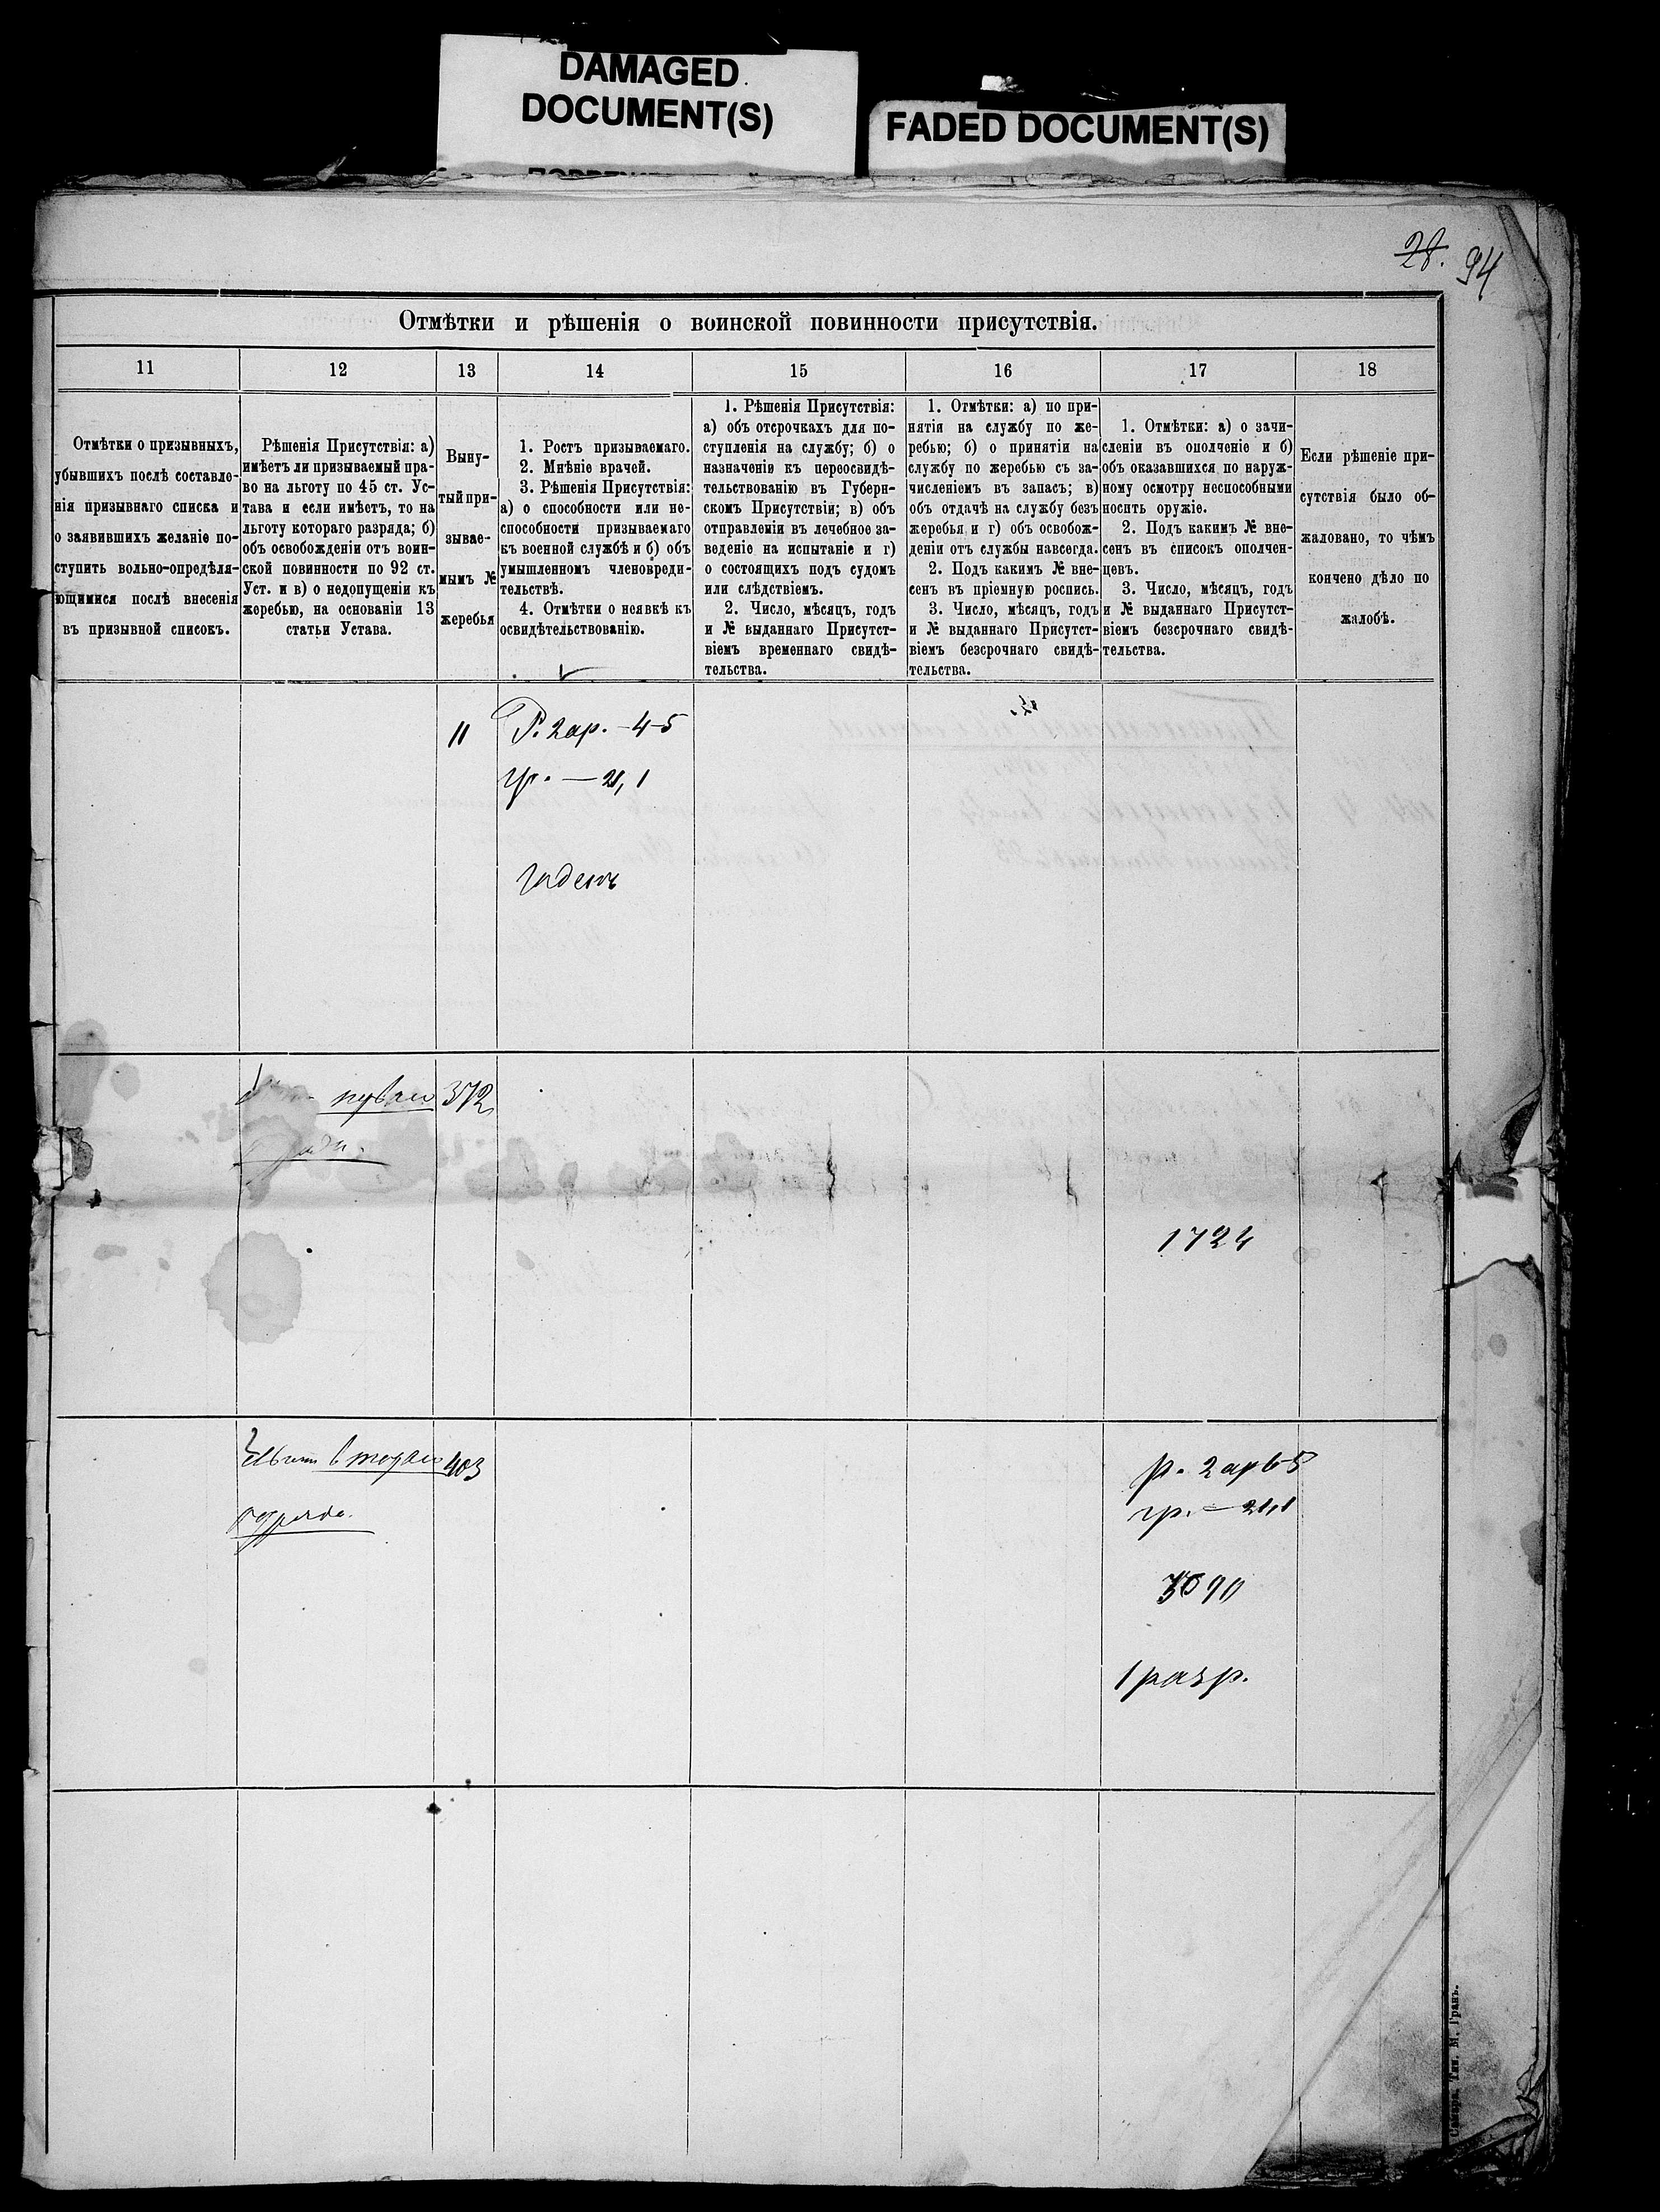 DAMAGED
DOCUMENT(S)
FADED DOCUMENT(S)
28. 94
Отмѣтки и рѣшенія о воинской повинности присутствія.
11 12 13 14 15 16 17 18
Отмѣтки о призывныхъ,
убывшихъ послѣ составле-
нія призывнаго списка и
о заявившихъ желаніе по-
ступить вольно-опредѣля-
ющимися послѣ внесенія
въ призывной списокъ.
Рѣшенія Присутствія: а)
имѣетъ ли призываемый пра-
во на льготу по 45 ст. Ус-
тава и если имѣетъ, то на
льготу котораго разряда; б)
объ освобожденіи отъ воин-
ской повинности по 92 ст.
Уст. и в) о недопущеніи къ
жеребью, на основаніи 13
статьи Устава.
Выну-
тый при-
зывае-
мымъ №
жеребья
1. Ростъ призываемаго.
2. Мнѣніе врачей.
3. Рѣшенія Присутствія:
а) о способности или не-
способности призываемаго
къ военной службѣ и б) объ
умышленномъ членовреди-
тельствѣ.
4. Отмѣтки о неявкѣ къ
освидѣтельствованію.
1. Рѣшенія Присутствія:
а) объ отсрочкахъ для по-
ступленія на службу; б) о
назначеніи къ переосвидѣ-
тельствованію въ Губерн-
скомъ Присутствіи; в) объ
отправленіи въ лечебное за-
веденіе на испытаніе и г)
о состоящихъ подъ судомъ
или слѣдствіемъ.
2. Число, мѣсяцъ, годъ
и № выданнаго Присутст-
віемъ временнаго свидѣ-
тельства.
1. Отмѣтки: а) по при-
нятія на службу по же-
ребью; б) о принятіи на
службу по жеребью съ за-
численіемъ въ запасъ; в)
объ отдачѣ на службу безъ
жеребья и г) объ освобож-
деніи отъ службы навсегда.
2. Подъ какимъ № вне-
сенъ въ пріемную роспись.
3. Число, мѣсяцъ, годъ
и № выданнаго Присутст-
віемъ безсрочнаго свидѣ-
тельства.
1. Отмѣтки: а) о зачи-
сленіи въ ополченіе и б)
объ оказавшихся по наруж-
ному осмотру неспособными
носить оружіе.
2. Подъ какимъ № вне-
сенъ въ списокъ ополчен-
цевъ.
3. Число, мѣсяцъ, годъ
и № выданнаго Присутст-
віемъ безсрочнаго свидѣ-
тельства.
Если рѣшеніе при-
сутствія было об-
жаловано, то чѣмъ
кончено дѣло по
жалобѣ.
11
Р. 2 ар. - 4-5
гр. — 21,1
годенъ
372
1724
втораго
разряда.
403
р. 2 ар 6-5
гр. — 21,1
1 разр.
Самара. Тип. М. Гранъ.